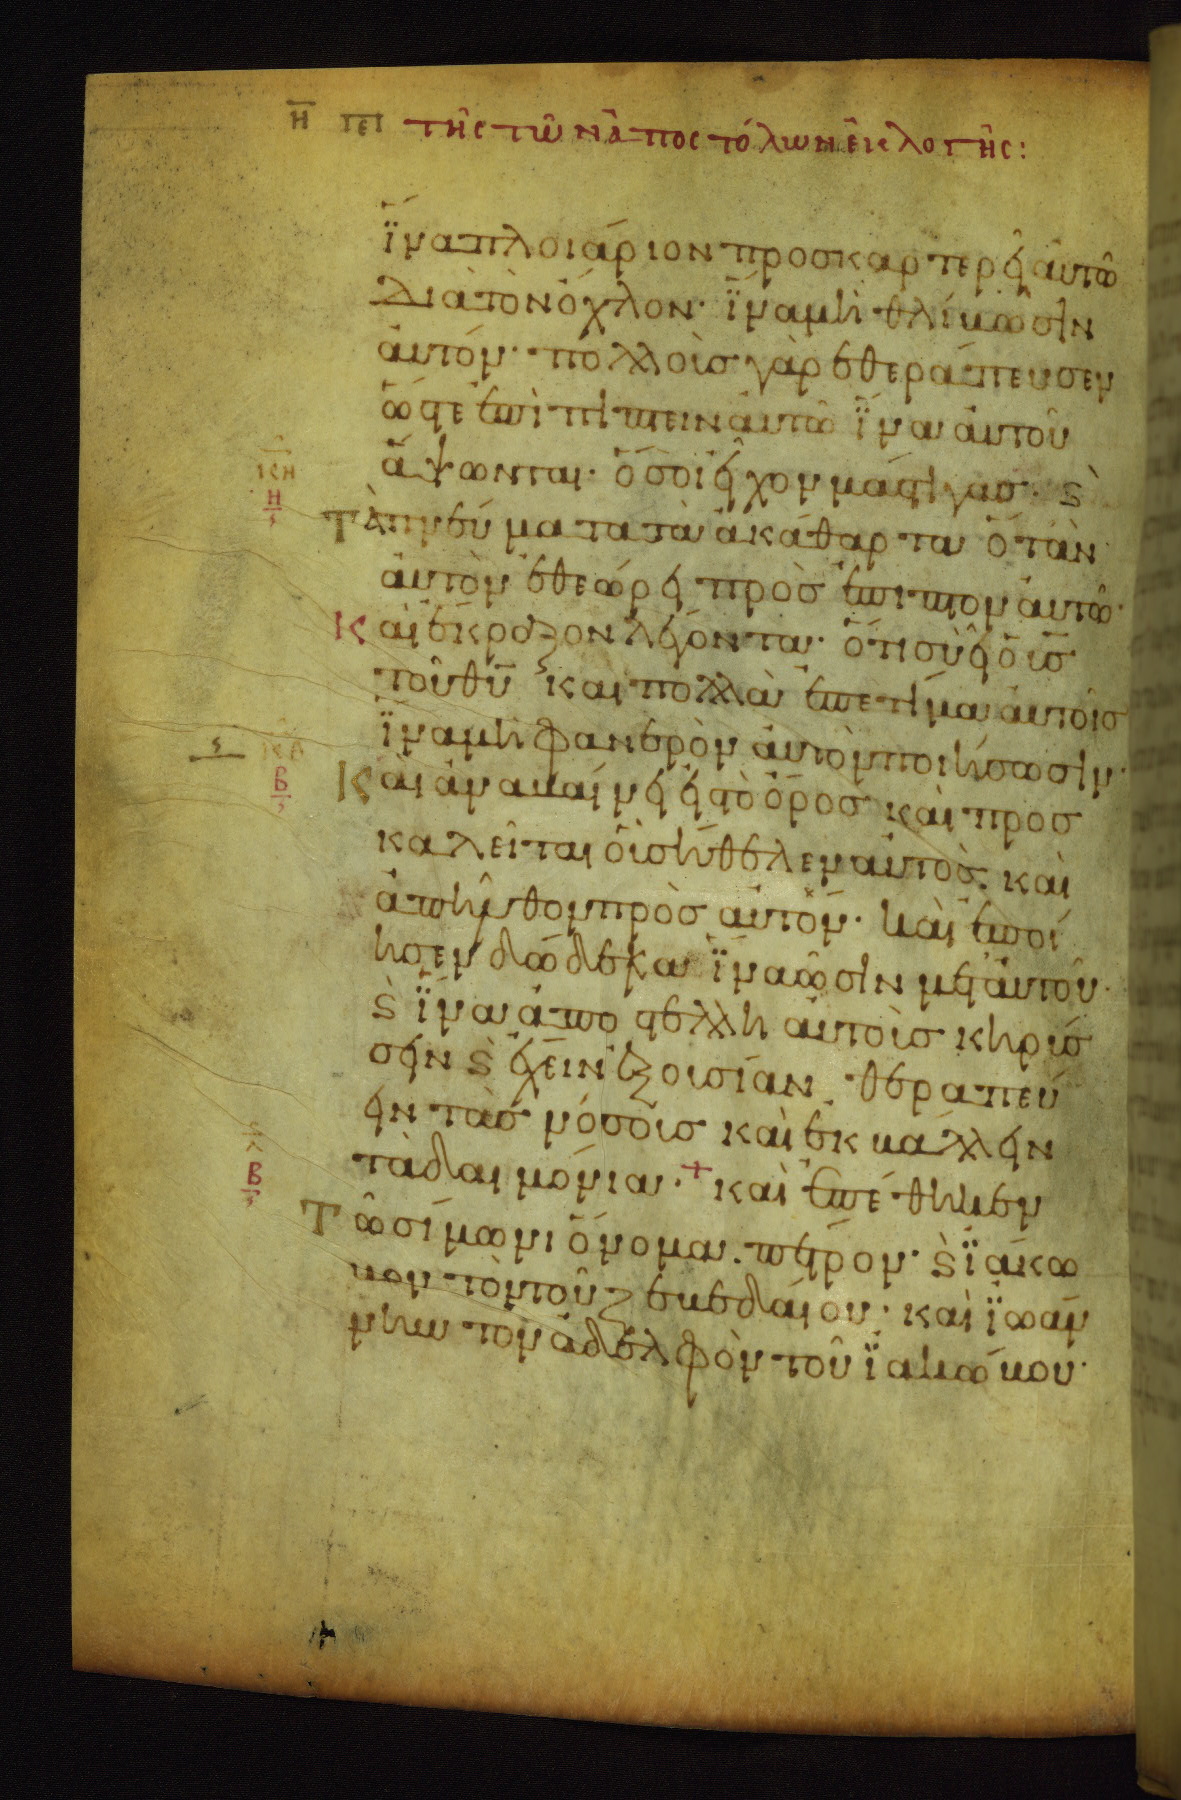 Η περὶ τῆς τῶν ἀποστόλων ἐκλογῆς:
ἵνα πλοιάριον προσκαρτερῆ αὐτῶ
διὰ τὸν ὄχλον· ἵνα μὴ θλίβωσιν
αὐτόν· πολλοὺς γὰρ ἐθεράπευσεν
ὥστε ἐπιπίπτειν αὐτῶ ἵνα αὐτοῦ
ἅψωνται· ὅσοι εἶχον μάστιγας· ϗ
Τὰ πνεύματα τὰ ἀκάθαρτα ὅταν
αὐτὸν ἐθεώρει προσέπιπτον αὐτῶ·
Καὶ ἔκραζον λέγοντα· ὅτι σὺ εἶ ὁ υς
τοῦ θυ καὶ πολλὰ ἐπετίμα αὐτοῖς
ἵνα μὴ φανερὸν αὐτὸν ποιήσωσιν·
Καὶ ἀναβαίνει εἰς τὸ ὄρος καὶ προσ
καλεῖται οὓς ἤθελεν αὐτὸς· καὶ
ἀπῆλθον πρὸς αὐτόν· καὶ ἐποί
ησεν δώδεκα ἵνα ὦσιν μετ αὐτοῦ·
ϗ ἵνα ἀποστέλλη αὐτοὺς κηρύσ
σειν ϗ ἔχειν ἐξουσίαν θεραπεύ
ειν τὰς νόσους καὶ ἐκβάλλειν
τὰ δαιμόνια· + καὶ ἐπέθηκεν
Τῶ σίμωνι ὄνομα· πέτρον· ϗ ϊάκω
βον τὸν τοῦ ζεβεδαίου· καὶ ϊωάν
νην τὸν ἀδελφὸν τοῦ ϊακώβου·
Η
Β
Β